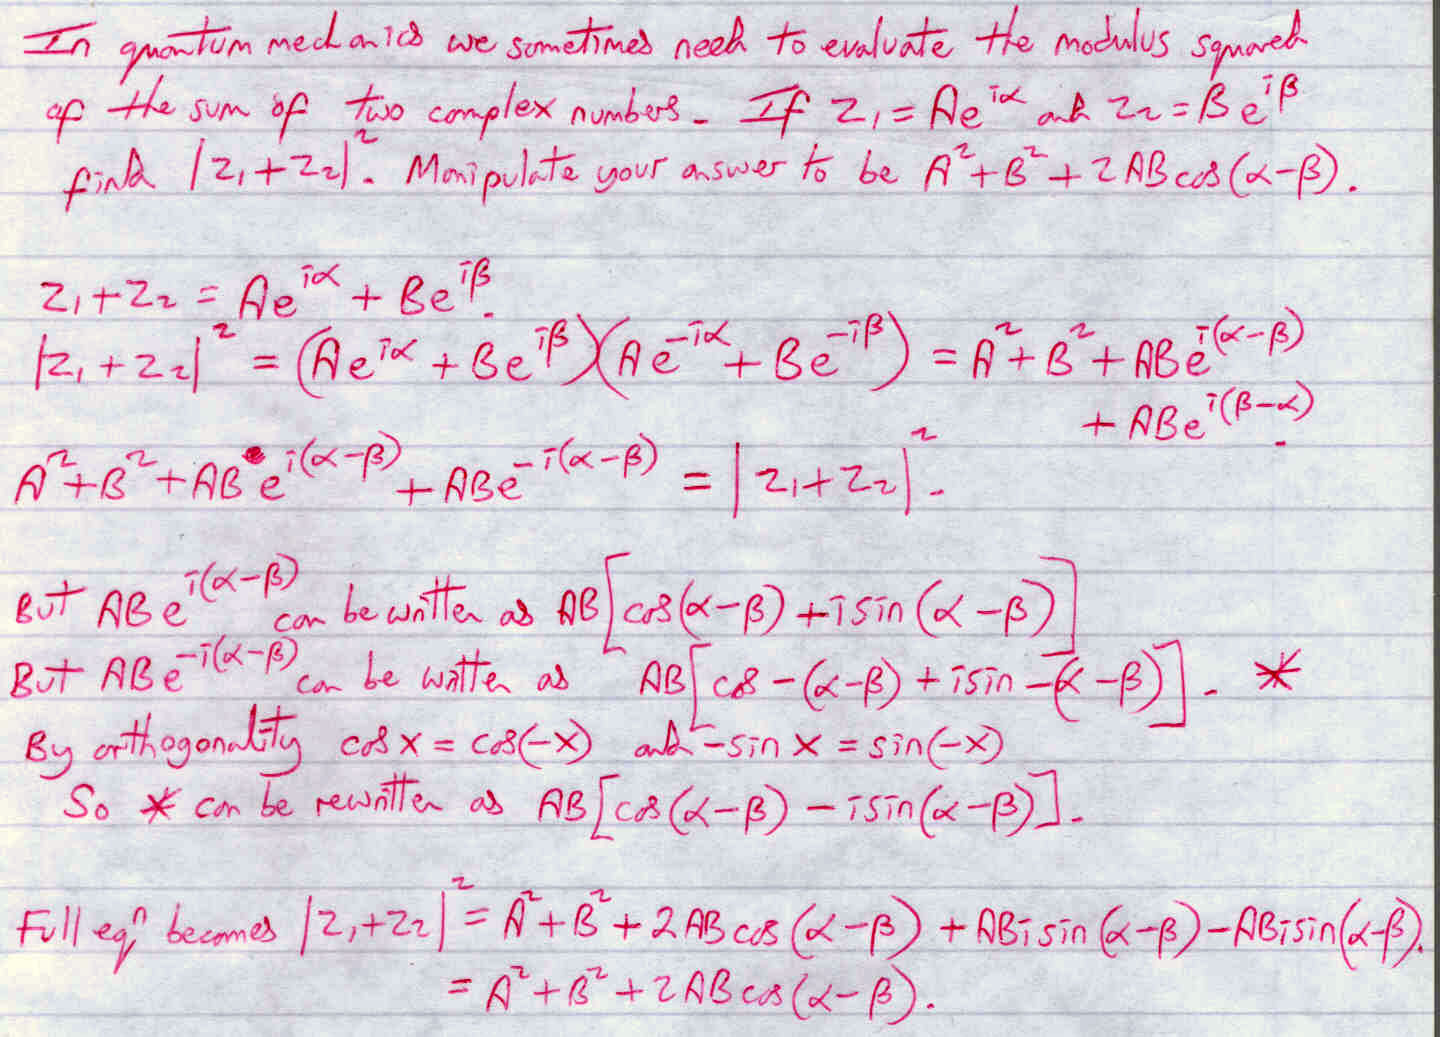 In quantum mechanics we sometimes need to evaluate the modulus squared
of the sum of two complex numbers. If z₁ = Ae^{iα} and z₂ = Be^{iβ}
find |z₁+z₂|². Manipulate your answer to be A²+B²+2ABcos(α-β).
z₁+z₂ = Ae^{iα} + Be^{iβ}.
|z₁+z₂|² = (Ae^{iα} + Be^{iβ})(Ae^{-iα} + Be^{-iβ}) = A²+B²+ABe^{i(α-β)}
+ABe^{i(β-α)}.
A²+B²+ABe^{i(α-β)}+ABe^{-i(α-β)} = |z₁+z₂|².
But ABe^{i(α-β)} can be written as AB[cos(α-β)+isin(α-β)]
But ABe^{-i(α-β)} can be written as AB[cos-(α-β)+isin-(α-β)]. *
By orthogonality cosx = cos(-x) and -sinx = sin(-x)
So * can be rewritten as AB[cos(α-β) - isin(α-β)].
Full eqⁿ becomes |z₁+z₂|² = A²+B²+2ABcos(α-β)+ABisin(α-β)-ABisin(α-β).
= A²+B²+2ABcos(α-β).